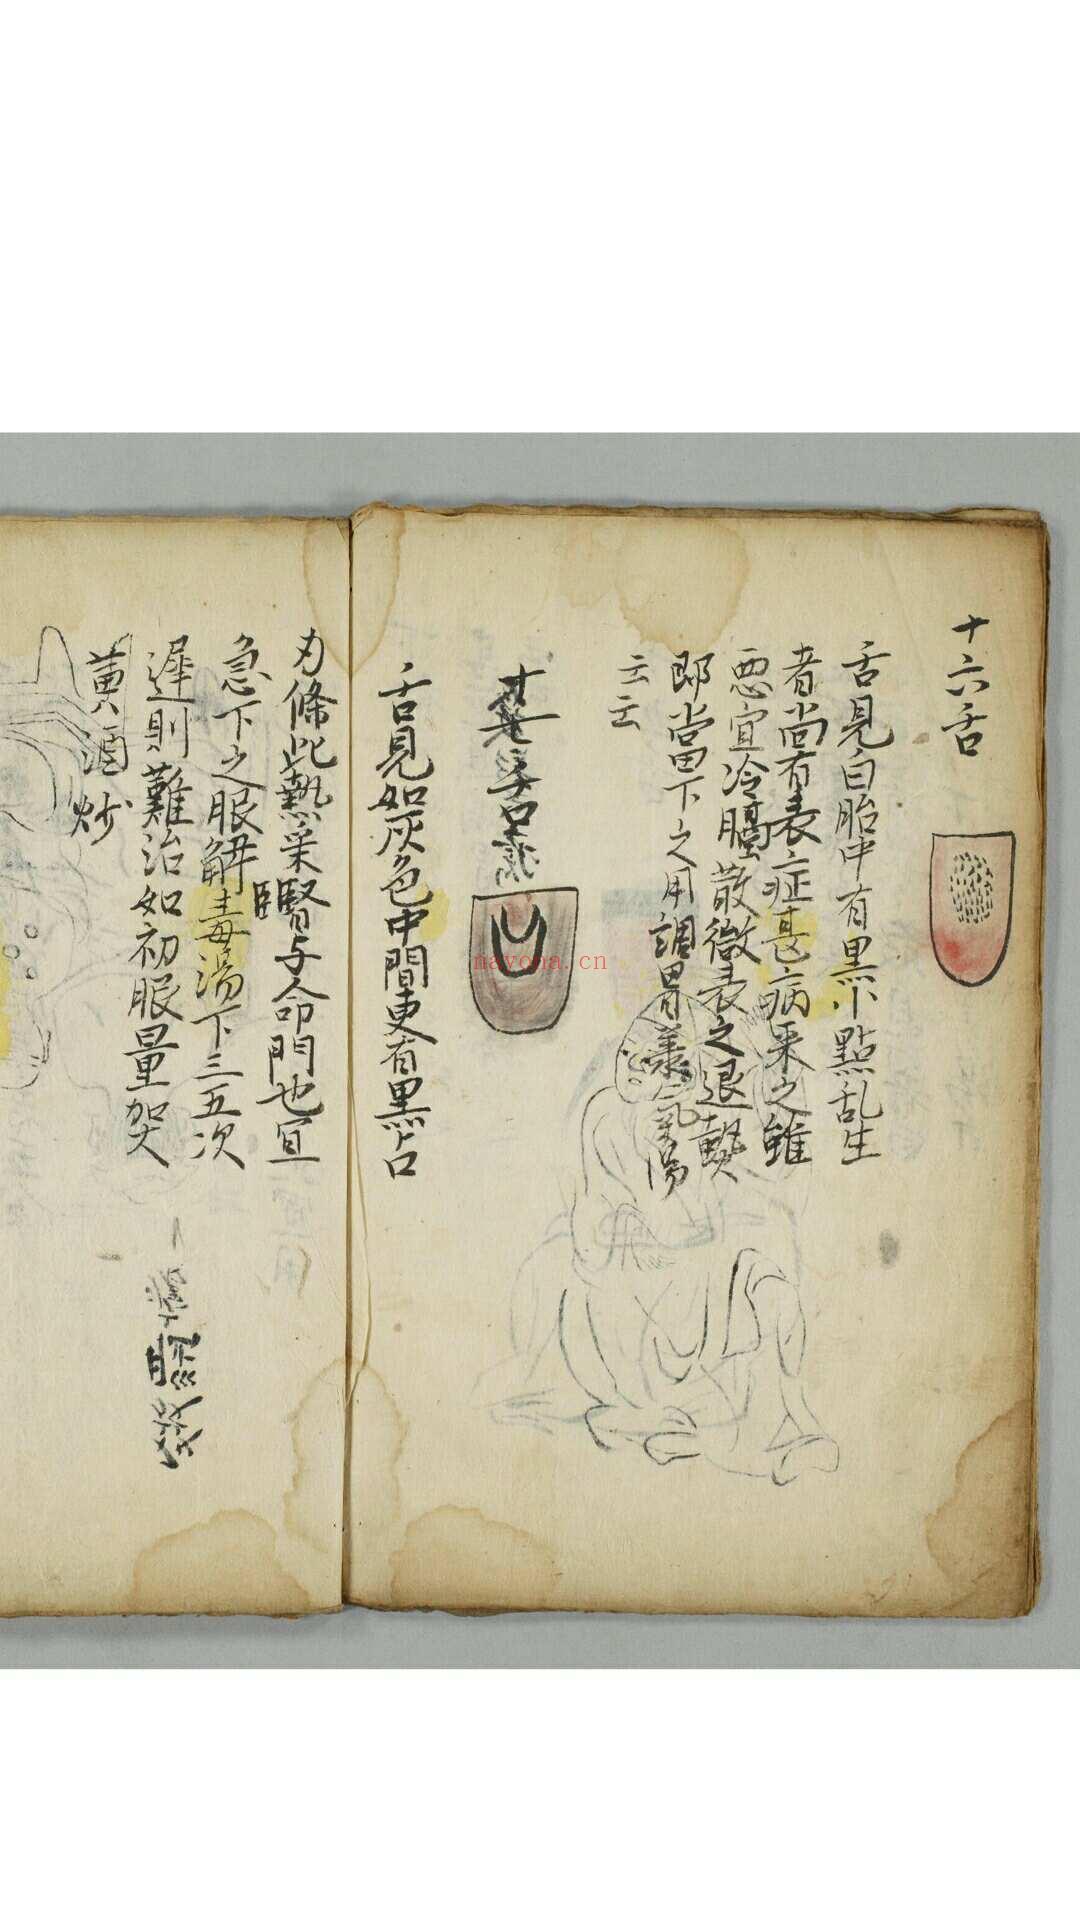 十六舌
舌見白胎中有黑小點乱生
者尚有表症甚病来之雖
惡宜冷膈散徵表之退
即當田下之用調胃氣湯
云云
舌見如灰色中間更有黑占
刃條此熱乘腎与命門也宜
急下之服解毒湯下三五次
遲則難治如初服量加大
黄酒炒
nayona.cn